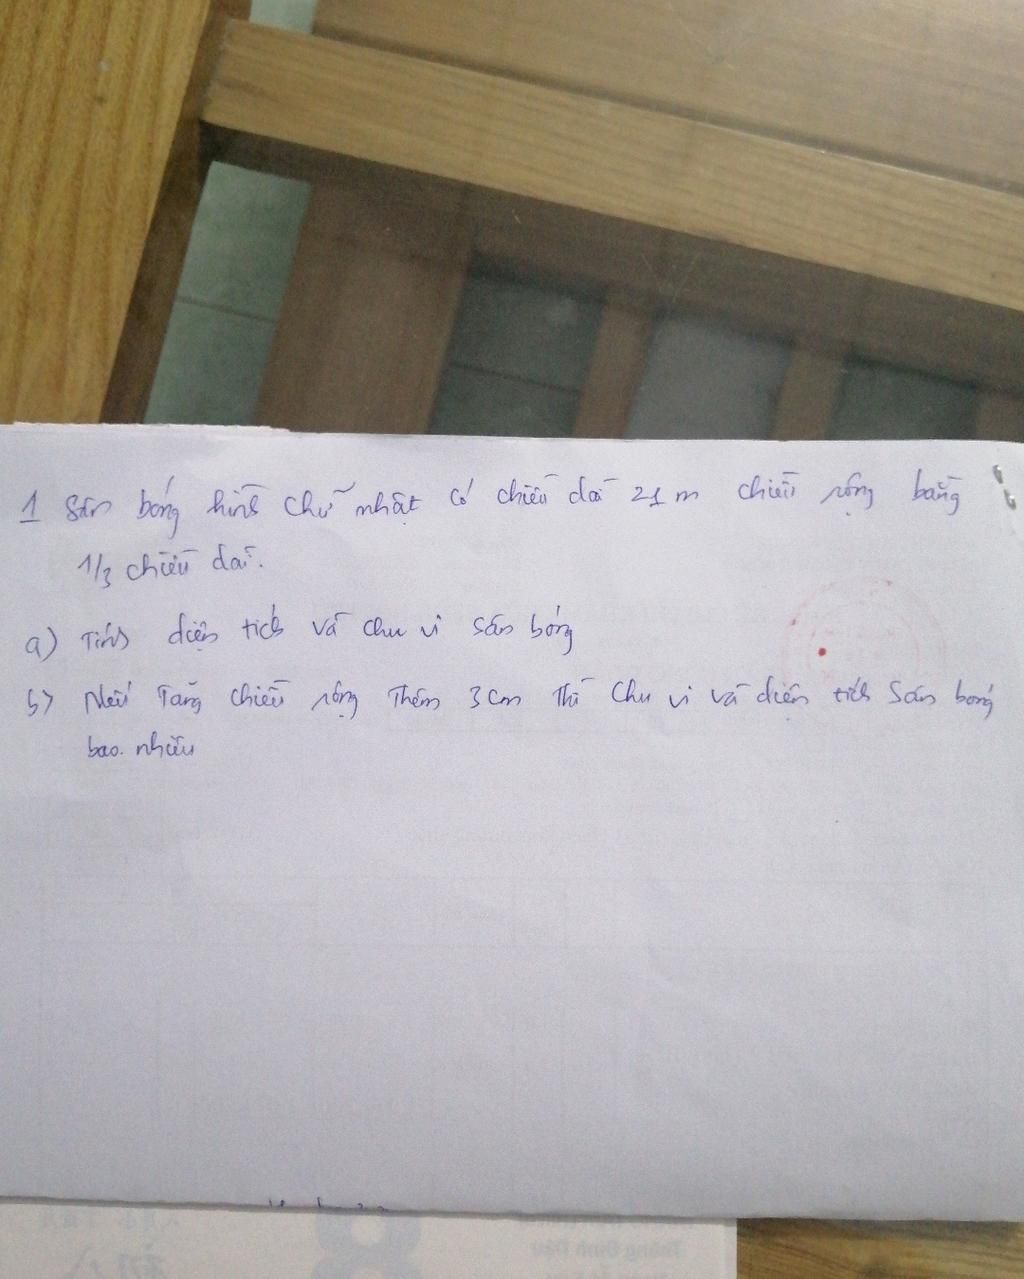 1 Sân bóng hình chữ nhật có chiều dài 21 m chiều rộng bằng
1/3 chiều dài.
a) Tính diện tích và chu vi sân bóng
b) Nếu Tăng chiều rộng Thêm 3 cm Thì Chu vi và diện tích Sân bóng
bao. nhiêu